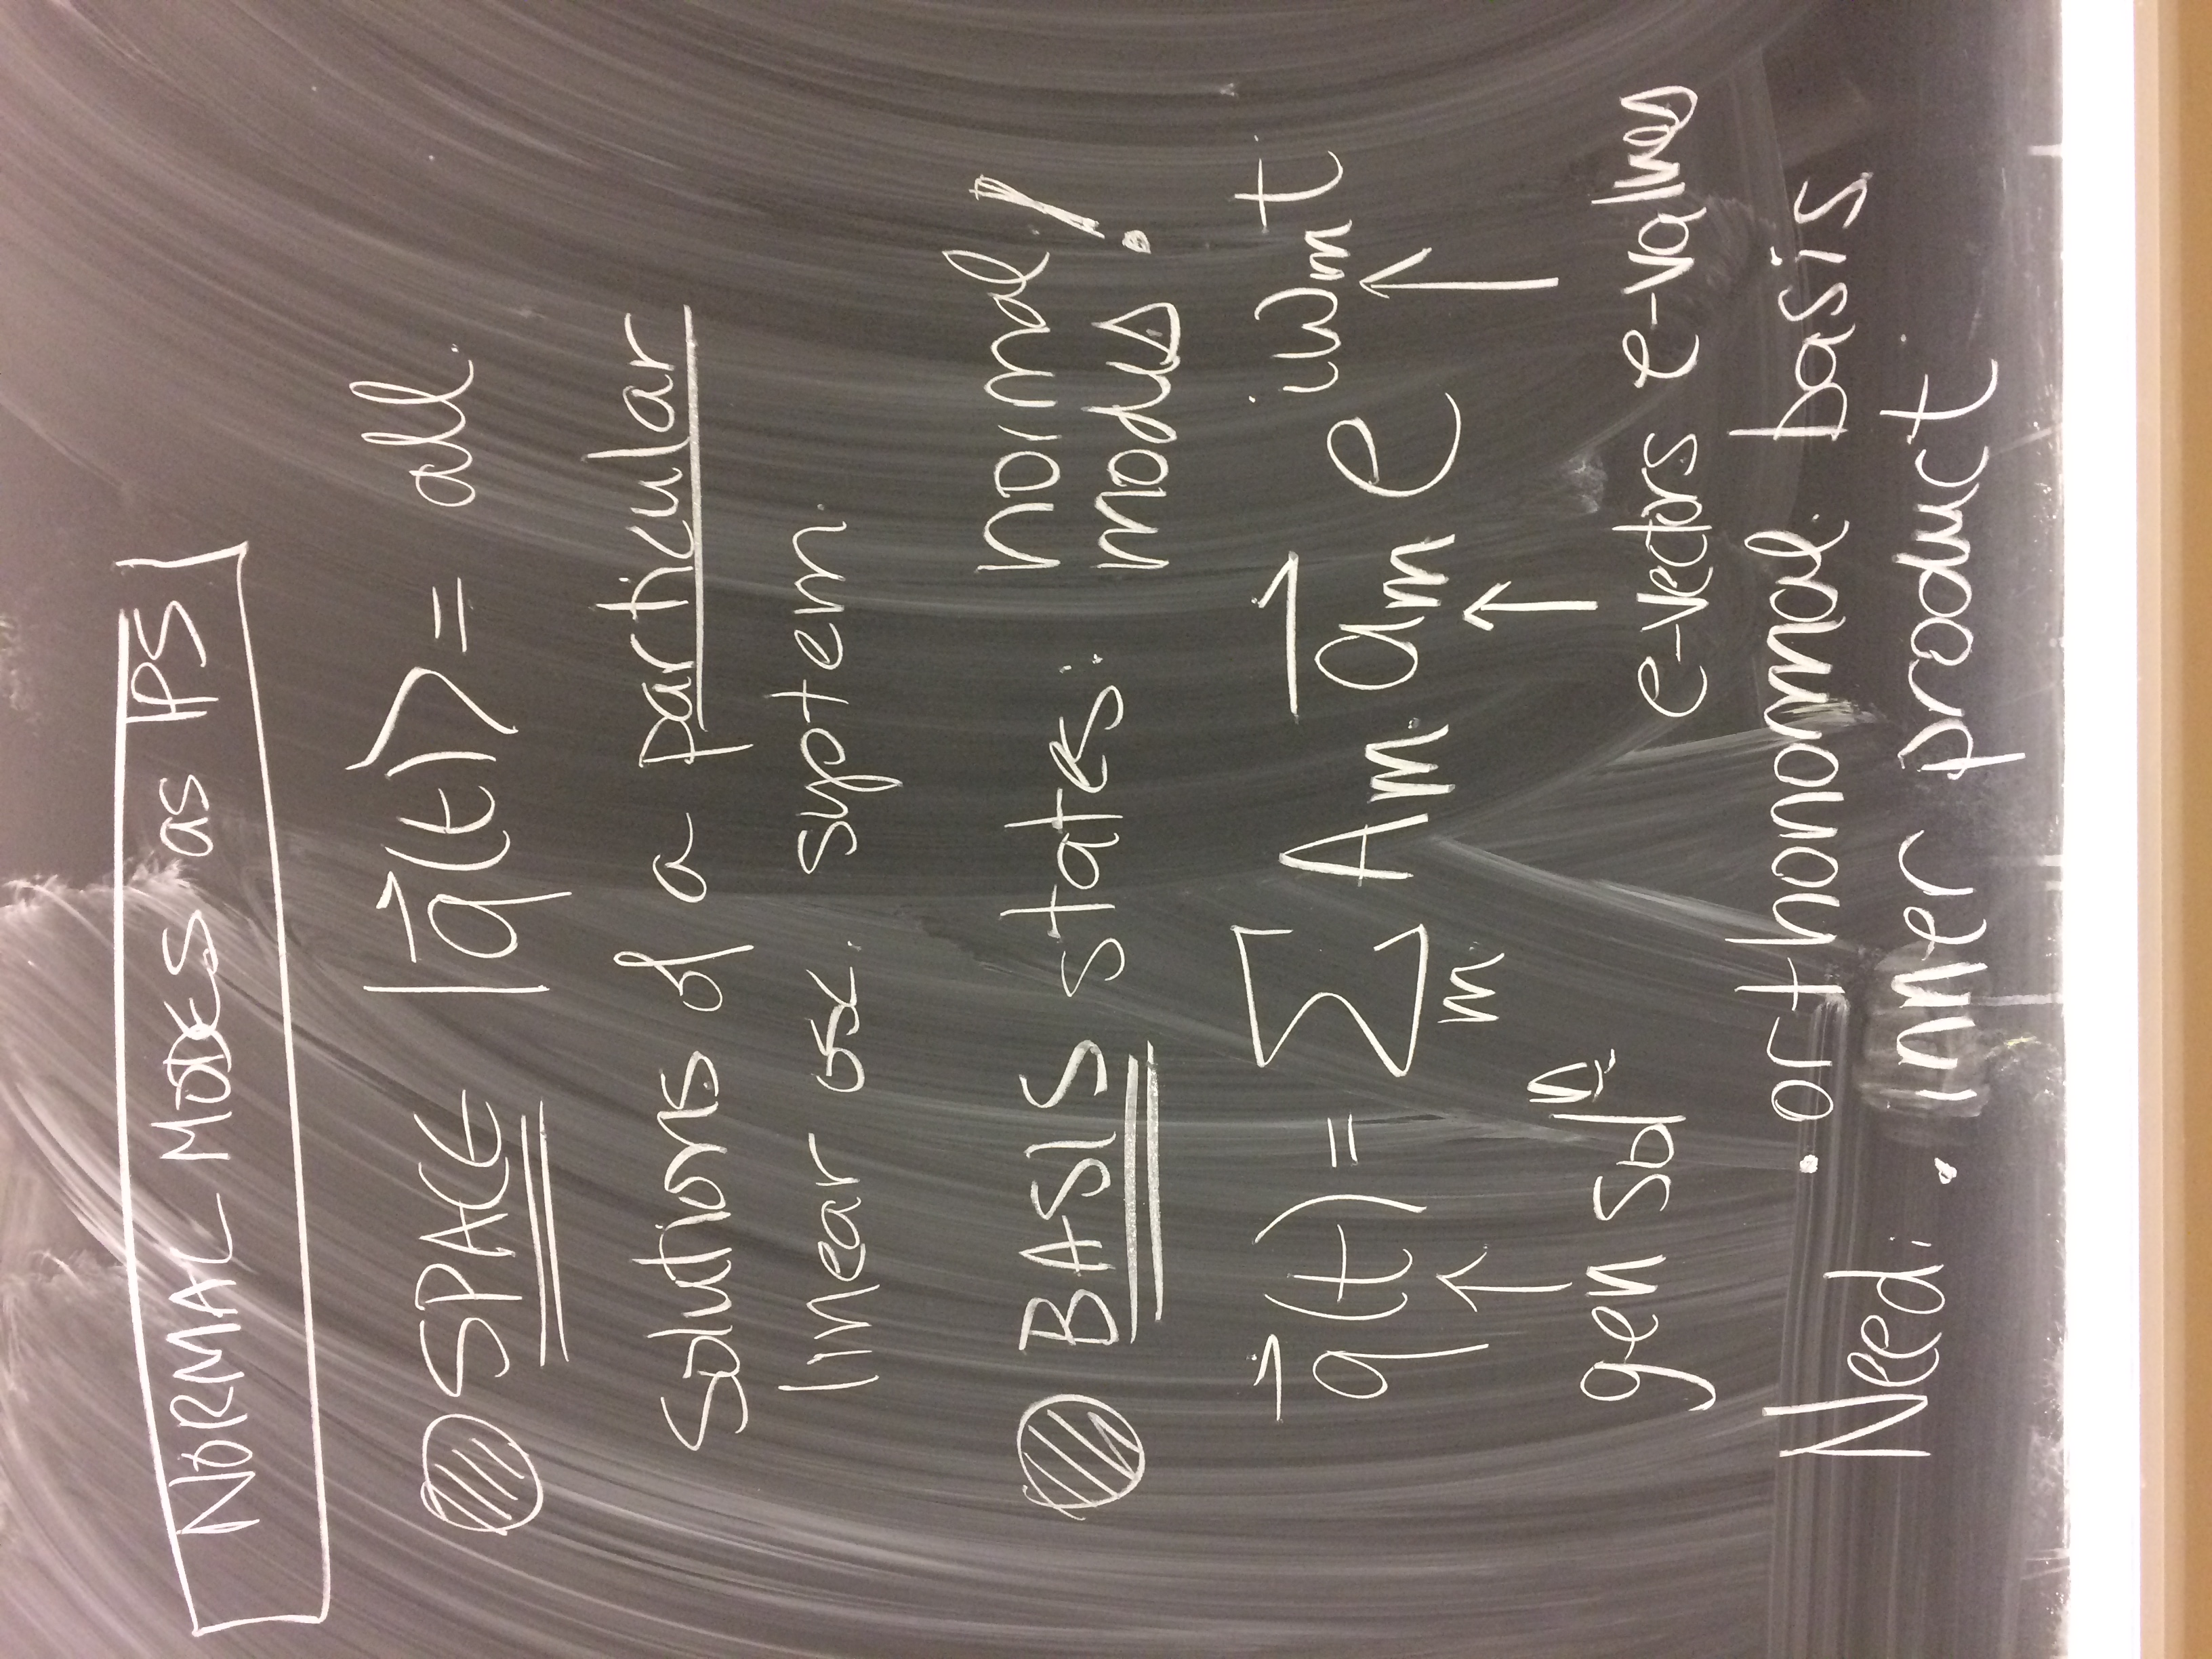 NORMAL MODES as IPS
SPACE |q⃗(t)⟩ = all
solutions of a particular
linear osc. system.
BASIS states: normal modes!
q⃗(t) = Σ_m A_m a⃗_m e^{iω_m t}
↑ ↑ ↑
gen solⁿ e-vectors e-values
Need: • orthonormal basis
• inner product